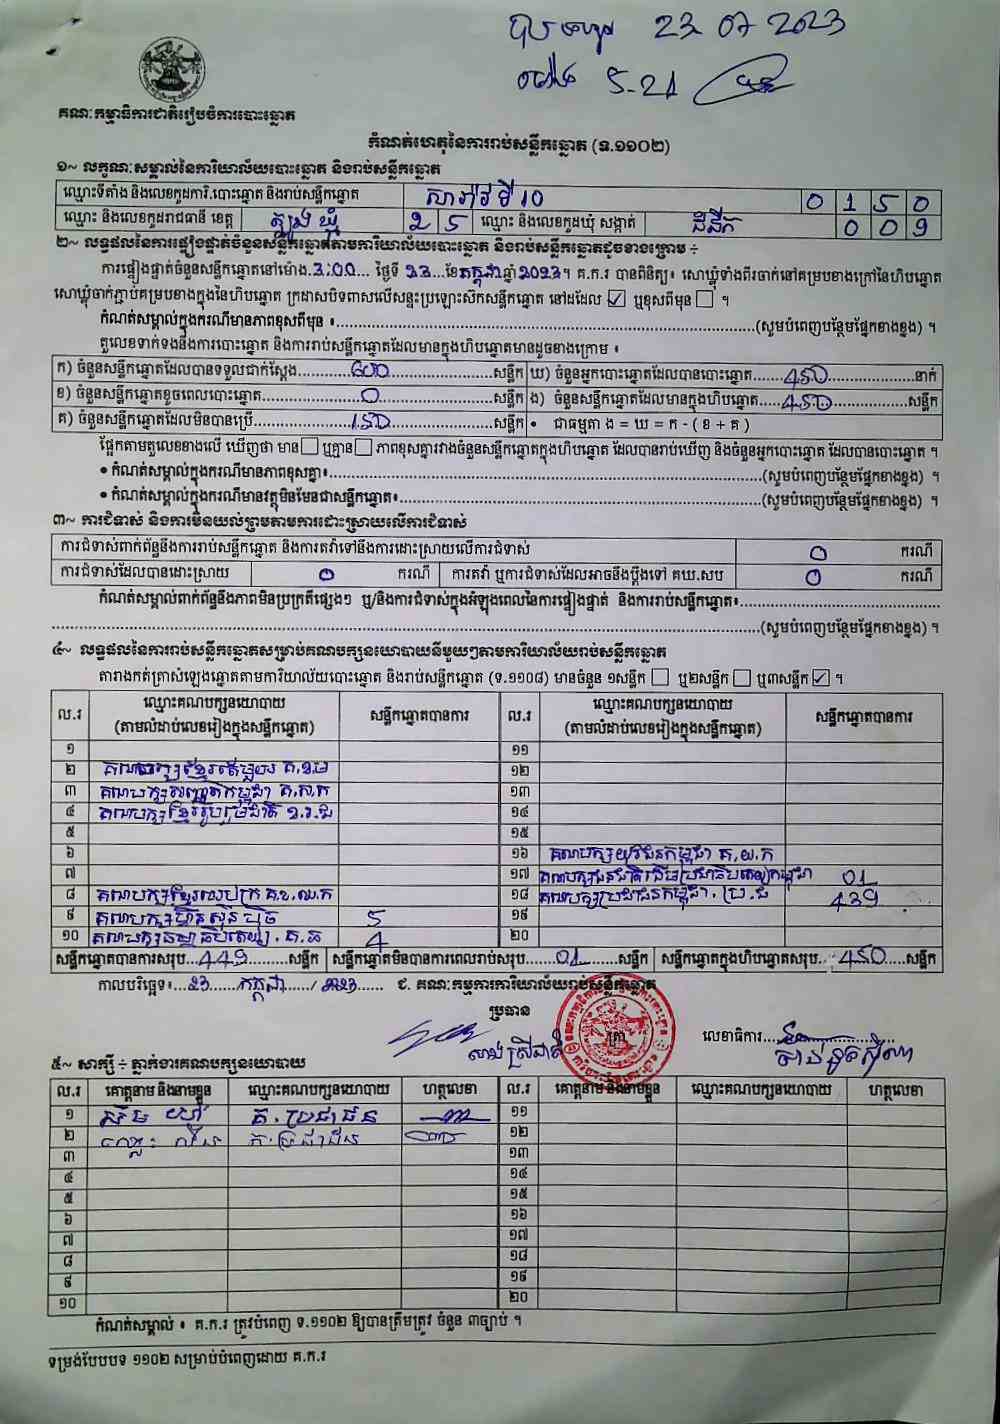 23 07 2023
5-21
គណៈកម្មាធិការជាតិរៀបចំការបោះឆ្នោត
កំណត់ហេតុនៃការរាប់សន្លឹកឆ្នោត (ទ.១១០២)
១~ លក្ខណៈសម្គាល់នៃការិយាល័យបោះឆ្នោត និងរាប់សន្លឹកឆ្នោត
ឈ្មោះទីតាំង និងលេខកូដការិ.បោះឆ្នោត និងរាប់សន្លឹកឆ្នោត 0 1 5 0
ឈ្មោះ និងលេខកូដរាជធានី ខេត្ត ត្បូងឃ្មុំ 2 5 ឈ្មោះ និងលេខកូដឃុំ សង្កាត់ 0 0 9
២~ លទ្ធផលនៃការផ្ទៀងផ្ទាត់ចំនួនសន្លឹកឆ្នោតតាមការិយាល័យបោះឆ្នោត និងរាប់សន្លឹកឆ្នោតដូចខាងក្រោម ÷
ការផ្ទៀងផ្ទាត់ចំនួនសន្លឹកឆ្នោតនៅម៉ោង.3:00.... ថ្ងៃទី 23...ខែកក្កដាឆ្នាំ2023។ គ.ក.រ បានពិនិត្យ៖ សោឃ្លុំទាំងពីរចាក់នៅគម្របខាងក្រៅនៃហិបឆ្នោត
សោឃ្លុំចាក់ភ្ជាប់គម្របខាងក្នុងនៃហិបឆ្នោត ក្រដាសបិទពាសលើសន្ទះប្រឡោះស៊កសន្លឹកឆ្នោត នៅដដែល ☑ ឬខុសពីមុន ☐ ។
កំណត់សម្គាល់ក្នុងករណីមានភាពខុសពីមុន ៖......(សូមបំពេញបន្ថែមផ្នែកខាងខ្នង) ។
តួលេខទាក់ទងនឹងការបោះឆ្នោត និងការរាប់សន្លឹកឆ្នោតដែលមានក្នុងហិបឆ្នោតមានដូចខាងក្រោម ៖
ក) ចំនួនសន្លឹកឆ្នោតដែលបានទទួលជាក់ស្តែង......600......សន្លឹក ឃ) ចំនួនអ្នកបោះឆ្នោតដែលបានបោះឆ្នោត......450......នាក់
ខ) ចំនួនសន្លឹកឆ្នោតខូចពេលបោះឆ្នោត......0......សន្លឹក ង) ចំនួនសន្លឹកឆ្នោតដែលមានក្នុងហិបឆ្នោត......450......សន្លឹក
គ) ចំនួនសន្លឹកឆ្នោតដែលមិនបានប្រើ......150......សន្លឹក • ជាធម្មតា ង = ឃ = ក - ( ខ + គ )
ផ្អែកតាមតួលេខខាងលើ ឃើញថា មាន ☐ ឬគ្មាន ☐ ភាពខុសគ្នារវាងចំនួនសន្លឹកឆ្នោតក្នុងហិបឆ្នោត ដែលបានរាប់ឃើញ និងចំនួនអ្នកបោះឆ្នោត ដែលបានបោះឆ្នោត ។
• កំណត់សម្គាល់ក្នុងករណីមានភាពខុសគ្នា៖......(សូមបំពេញបន្ថែមផ្នែកខាងខ្នង) ។
• កំណត់សម្គាល់ក្នុងករណីមានវត្ថុមិនមែនជាសន្លឹកឆ្នោត៖......(សូមបំពេញបន្ថែមផ្នែកខាងខ្នង) ។
៣~ ការជំទាស់ និងការមិនយល់ព្រមតាមការដោះស្រាយលើការជំទាស់
ការជំទាស់ពាក់ព័ន្ធនឹងការរាប់សន្លឹកឆ្នោត និងការតវ៉ាទៅនឹងការដោះស្រាយលើការជំទាស់ 0 ករណី
ការជំទាស់ដែលបានដោះស្រាយ 0 ករណី ការតវ៉ា ឬការជំទាស់ដែលអាចនឹងប្តឹងទៅ គឃ.សប 0 ករណី
កំណត់សម្គាល់ពាក់ព័ន្ធនឹងភាពមិនប្រក្រតីផ្សេងៗ ឬ/និងការជំទាស់ក្នុងអំឡុងពេលនៃការផ្ទៀងផ្ទាត់ និងការរាប់សន្លឹកឆ្នោត៖......
......(សូមបំពេញបន្ថែមផ្នែកខាងខ្នង) ។
៤~ លទ្ធផលនៃការរាប់សន្លឹកឆ្នោតសម្រាប់គណបក្សនយោបាយនីមួយៗតាមការិយាល័យរាប់សន្លឹកឆ្នោត
តារាងកត់ត្រាសំឡេងឆ្នោតតាមការិយាល័យបោះឆ្នោត និងរាប់សន្លឹកឆ្នោត (ទ.១១០៨) មានចំនួន ១សន្លឹក ☐ ឬ២សន្លឹក ☐ ឬ៣សន្លឹក ☑ ។
ល.រ ឈ្មោះគណបក្សនយោបាយ (តាមលំដាប់លេខរៀងក្នុងសន្លឹកឆ្នោត) សន្លឹកឆ្នោតបានការ ល.រ ឈ្មោះគណបក្សនយោបាយ (តាមលំដាប់លេខរៀងក្នុងសន្លឹកឆ្នោត) សន្លឹកឆ្នោតបានការ
១ ១១
២ គណបក្សខ្មែរតែមួយ គ.ខ.ម ១២
៣ ១៣
៤ គណបក្សខ្មែររួបរួមជាតិ ១៤
៥ ១៥
៦ ១៦ គណបក្សយុវជនកម្ពុជា គ.យ.ក
៧ ១៧ 01
៨ ១៨ គណបក្សប្រជាជនកម្ពុជា 439
៩ គណបក្សហ៊្វុនស៊ិនប៉ិច 5 ១៩
១០ គណបក្សធម្មាធិបតេយ្យ 4 ២០
សន្លឹកឆ្នោតបានការសរុប..449......សន្លឹក សន្លឹកឆ្នោតមិនបានការពេលរាប់សរុប......01......សន្លឹក សន្លឹកឆ្នោតក្នុងហិបឆ្នោតសរុប..450......សន្លឹក
កាលបរិច្ឆេទ៖...23....../កក្កដា....../2023...... ជ. គណៈកម្មការការិយាល័យរាប់សន្លឹកឆ្នោត
ប្រធាន
លេខាធិការ......
៥~ សាក្សី ÷ ភ្នាក់ងារគណបក្សនយោបាយ
ល.រ គោត្តនាម និងនាមខ្លួន ឈ្មោះគណបក្សនយោបាយ ហត្ថលេខា ល.រ គោត្តនាម និងនាមខ្លួន ឈ្មោះគណបក្សនយោបាយ ហត្ថលេខា
១ គ.ប្រជាជន ១១
២ គ.ប្រជាជន ១២
៣ ១៣
៤ ១៤
៥ ១៥
៦ ១៦
៧ ១៧
៨ ១៨
៩ ១៩
១០ ២០
កំណត់សម្គាល់ ៖ គ.ក.រ ត្រូវបំពេញ ទ.១១០២ ឱ្យបានត្រឹមត្រូវ ចំនួន ៣ច្បាប់ ។
ទម្រង់បែបបទ ១១០២ សម្រាប់បំពេញដោយ គ.ក.រ